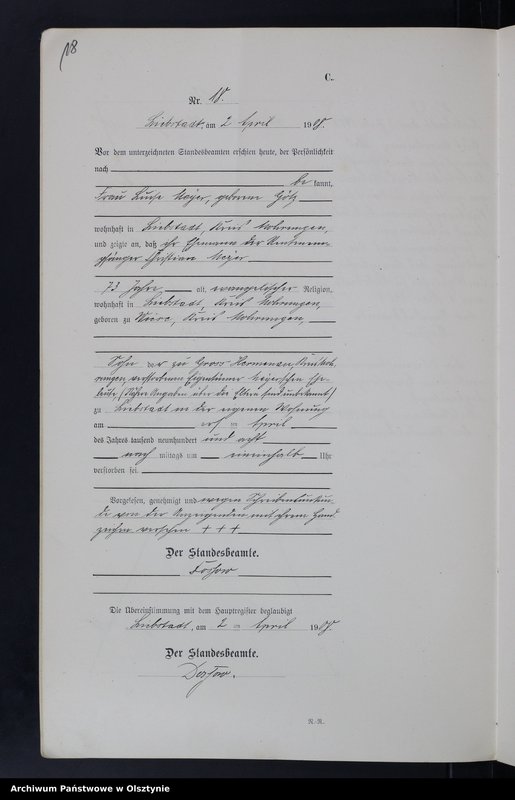 18
C.
Nr. 18.
Liebstadt, am 2 April 1908.
Vor dem unterzeichneten Standesbeamten erschien heute, der Persönlichkeit
nach
be kannt,
Frau Luise Meyer, geborene
wohnhaft in Liebstadt, Kreis Mohrungen,
und zeigte an, daß ihr Ehemann der Renten
empfänger Christian Meyer
73 Jahre alt, evangelischer Religion,
wohnhaft in Liebstadt, Kreis Mohrungen,
geboren zu Kreis Mohrungen,
Sohn der zu Gross Hermenau, Kreis Moh-
rungen, verstorbenen Eigentümer Meyerschen Ehe-
leute, (Nähere Angaben über die Eltern sind unbekannt)
zu Liebstadt in der eigenen Wohnung
am April
des Jahres tausend neunhundert und acht
nach mittags um einhalb Uhr
verstorben sei.
Vorgelesen, genehmigt und wegen Schreibensunkun-
de von der Anzeigenden mit ihrem Hand
zeichen versehen + + +
Der Standesbeamte.
Die Übereinstimmung mit dem Hauptregister beglaubigt
Liebstadt, am 2 April 1908.
Der Standesbeamte.
N.-R.
Archiwum Państwowe w Olsztynie